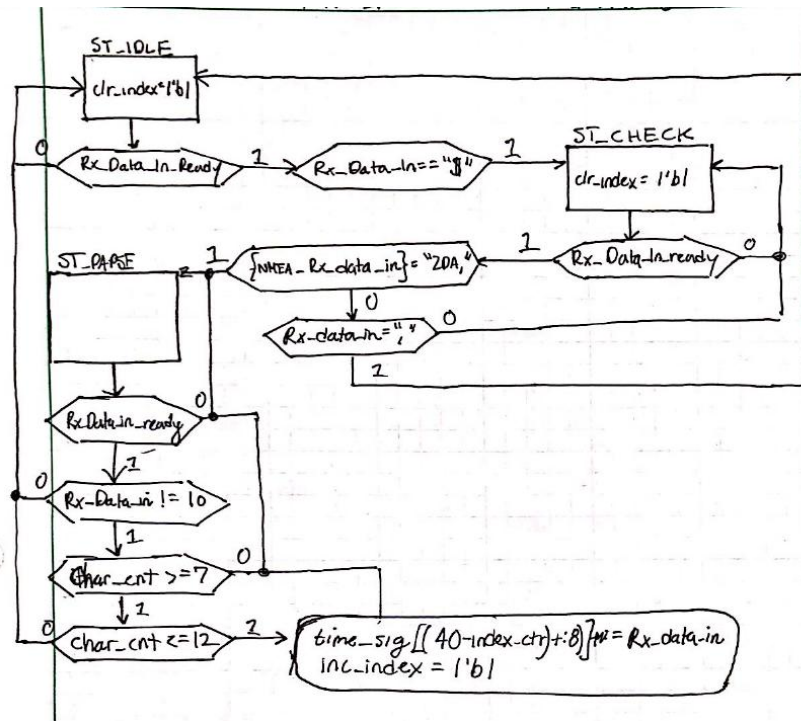 ST_IDLE
clr_index=1'b1
0
Rx_Data_In_Ready
1
Rx_Data_In== "$"
1
ST_CHECK
clr_index = 1'b1
Rx_Data_In_ready
0
1
{NMEA_Rx_data_in}= "ZDA,"
1
0
Rx-data_in= ","
0
1
ST_PARSE
Rx_Data_in_ready
0
1
Rx_Data_in != 10
0
1
Char_cnt >=7
0
1
char_cnt <=12
0
1
time_sig[(40-index_ctr)+:8] = Rx_data_in
inc_index = 1'b1